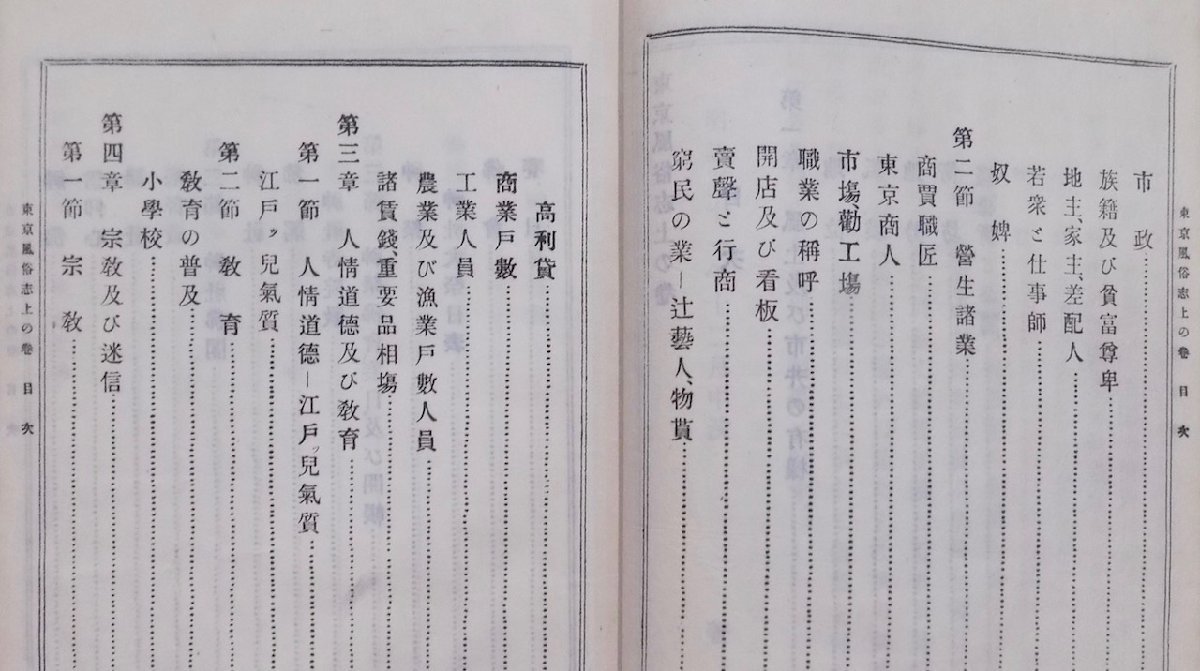 東京風俗志上の卷 目次
市政
族籍及び貧富尊卑
地主、家主、差配人
若衆と仕事師
奴婢
第二節 營生諸業
商賈職匠
東京商人
市塲、勸工塲
職業の稱呼
開店及び看板
賣聲と行商
窮民の業―辻藝人、物貰
高利貸
商業戸數
工業人員
農業及び漁業戸數人員
諸賃錢、重要品相塲
第三章 人情道德及び敎育
第一節 人情道德―江戸ッ兒氣質
江戸ッ兒氣質
第二節 敎育
敎育の普及
小學校
第四章 宗敎及び迷信
第一節 宗敎
東京風俗志上の卷 目次